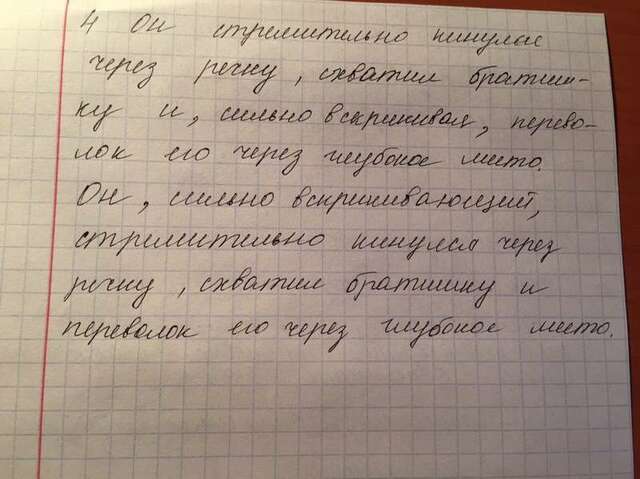 4 Он стремительно кинулся
через речку, схватил братиш-
ку и, сильно вскрикивая, перево-
лок его через глубокое место.
Он, сильно вскрикивающий,
стремительно кинулся через
речку, схватил братишку и
переволок его через глубокое место.